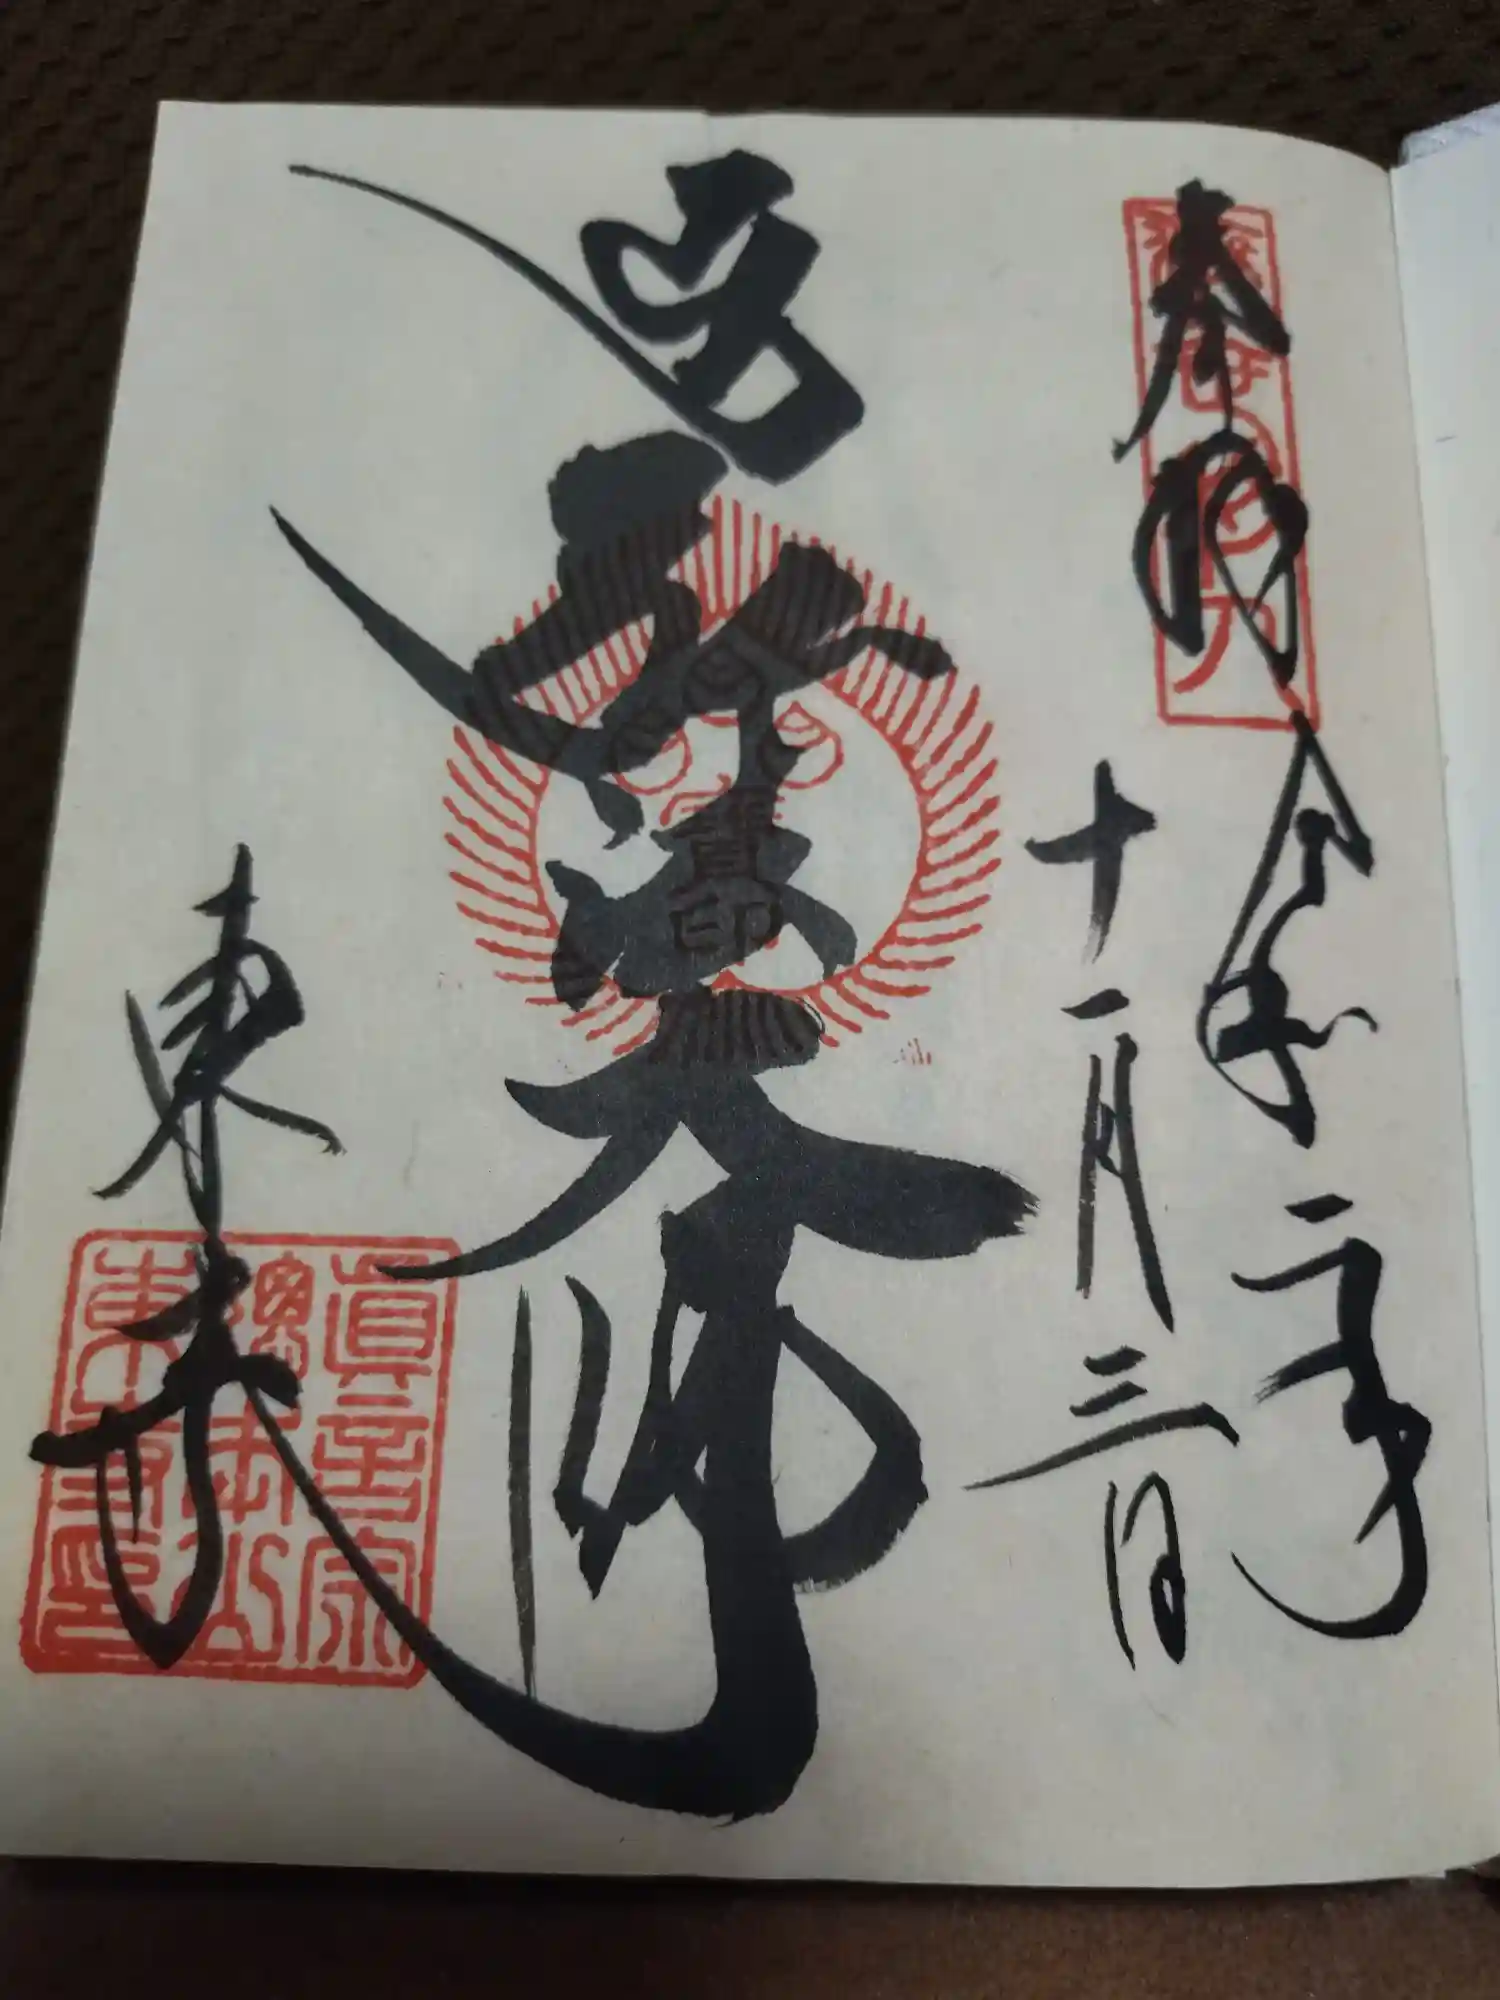 奉拝
令和二年
十一月三日
弘法大師
寶印
東寺
眞言宗
總本山
東寺印